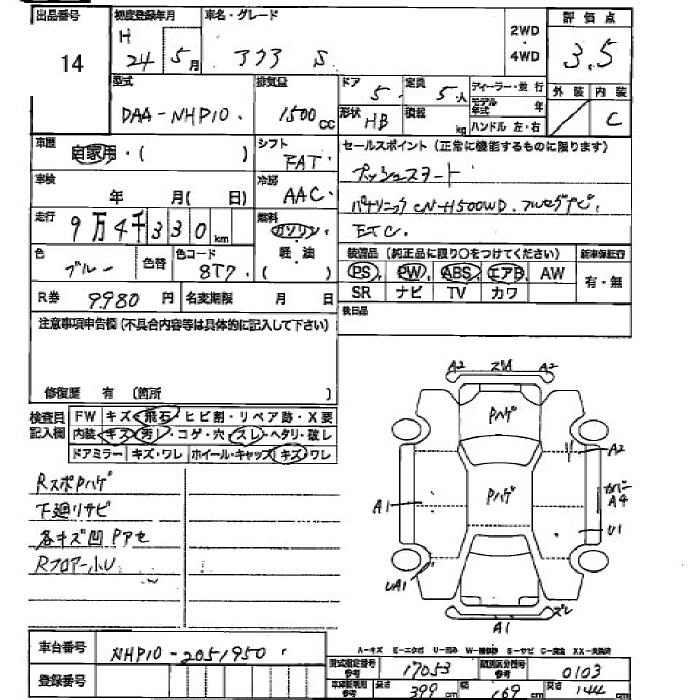 出品番号 初度登録年月 車名・グレード 2WD・4WD 評価点
14 H 24 5月 アクア S 3.5
型式 排気量 ドア 5 定員 5人 ディーラー・並行 外装 内装
DAA-NHP10 1500cc 形状 HB 積載 kg モデル年式 年 C
ハンドル 左・右
車歴 自家用・( ) シフト FAT セールスポイント (正常に機能するものに限ります)
車検 年 月( 日) 冷房 AAC プッシュスタート
走行 9万4千330km 燃料 ガソリン・軽油 ( ) パナソニックCN-H500WD.フルセグナビ.
ETC.
色 ブルー 色替 色コード 8T7 装備品 (純正品に限り○をつけてください) 新車保証書
PS PW ABS エアB AW 有・無
R券 9980円 名変期限 月 日 SR ナビ TV カワ
注意事項申告欄 (不具合内容等は具体的に記入して下さい) 後日品
修復歴 有 (箇所 )
検査員記入欄 FW キズ・飛石・ヒビ割・リペア跡・X要
内装 キズ・汚レ・コゲ・穴・スレ・ヘタリ・破レ
ドアミラー キズ・ワレ ホイール・キャップ キズ・ワレ
RスポPハゲ
下廻リサビ
各キズ凹 Pアセ
Rフロアー小U
A2 ズレA A2
Pハゲ
A2
Pハゲ
カバーA4
A1
U1
UA1
ズレ
A1
A-キズ E-エクボ U-凹み W-補修跡 S-サビ C-腐食 XX-交換済
車台番号 NHP10-2051950 型式指定番号 参考 17053 類別区分番号 参考 0103
登録番号 参考 長さ 399cm 幅 169cm 高さ 144cm